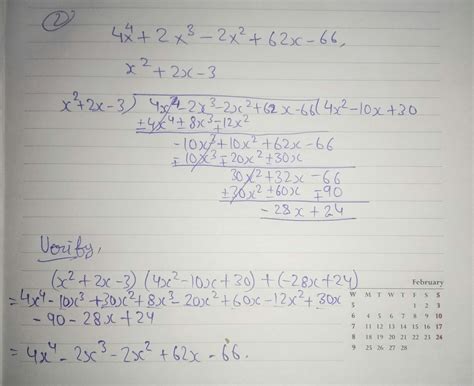 ②
4x⁴ + 2x³ - 2x² + 62x - 66,
x² + 2x - 3
x²+2x-3) 4x⁴-2x³-2x²+62x-66(4x²-10x+30
±4x⁴±8x³∓12x²
-10x³+10x²+62x-66
∓10x³∓20x²±30x
30x²+32x-66
±30x²±60x∓90
-28x+24
Verify,
(x²+2x-3) (4x²-10x+30) + (-28x+24)
=4x⁴-10x³+30x²+8x³-20x²+60x-12x²+30x
-90-28x+24
=4x⁴-2x³-2x²+62x-66.
February
W M T W T F S S
5 1 2 3
6 4 5 6 7 8 9 10
7 11 12 13 14 15 16 17
8 18 19 20 21 22 23 24
9 25 26 27 28